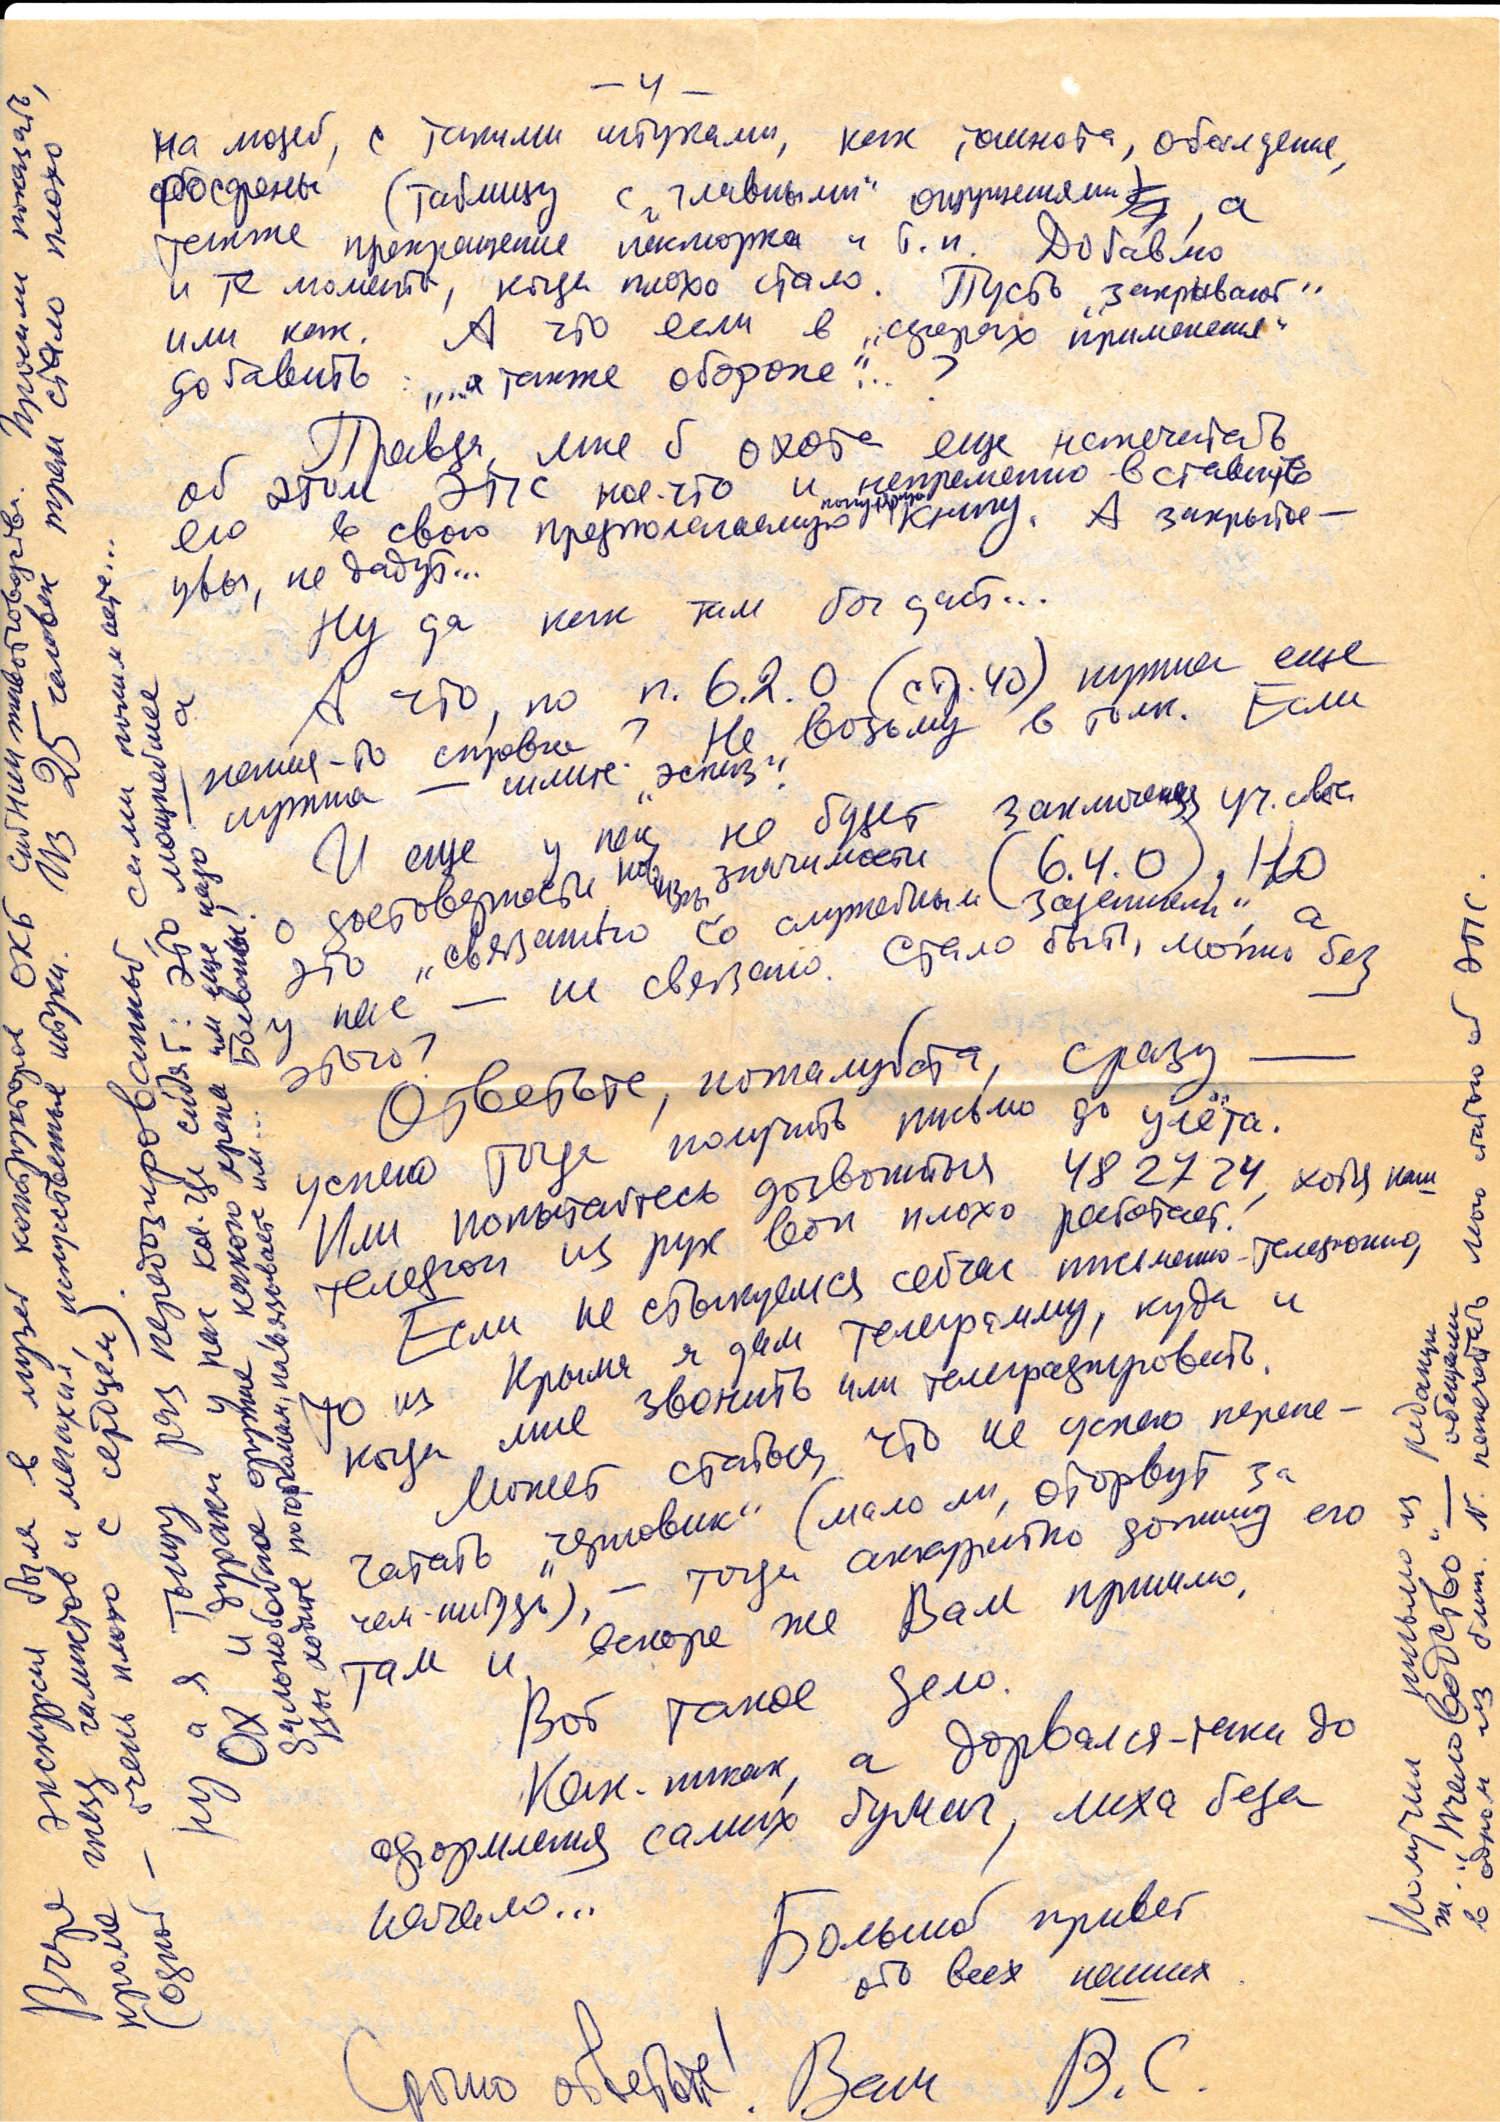 — 4 —
на людей, с такими штуками, как тошнота, обалдение,
фосфены (таблицу с „главными“ ощущениями), а
также прекращение насморка и т.п. Добавлю
и те моменты, когда плохо стало. Пусть „закрывают“
или как. А что если в „сферах применения“
добавить: „...а также обороне“...?
Правда, мне б охота еще напечатать
об этом ЭПС кое-что и непременно вставить
его в свою предполагаемую популярную книгу. А закрытое —
увы, не дадут...
Ну да как там бог даст...
А что, по п. 6.2.0 (стр. 40) нужна еще
какая-то справка? Не возьму в толк. Если
нужна — шлите „эскиз“.
И еще у нас не будет заключения уч. совета
о достоверности, значимости (6.4.0). Но
это „связанно со служебным заданием“, а
у нас — не связано. Стало быть, можно без
этого?
Ответьте, пожалуйста, сразу —
успею тогда получить письмо до улёта.
Или попытайтесь дозвониться 48 27 24, хотя наш
телефон из рук вон плохо работает.
Если не стыкуемся сейчас письменно-телефонно,
то из Крыма я дам телеграмму, куда и
когда мне звонить или телеграфировать.
Может статься, что не успею перепе-
чатать „черновик“ (мало ли, оторвут за
чем-нибудь), — тогда аккуратно допишу его
там и вскоре же Вам пришлю.
Вот такое дело.
Как-никак, а дорвался-таки до
оформления самих бумаг, лиха беда
начало...
Большой привет
ото всех наших.
Срочно ответьте! Ваш В.С.
Вчера экскурсия была в музей конструкторов ОКБ СибНИИ животноводства. Просили показать,
кроме гнезд галиктов и мегахил, искусственные штуки. Из 25 человек трем стало плохо
(одной — очень плохо с сердцем).
Ну а я тыщу раз передозированный сами понимаете...
Ох и дураки у нас кое-где сидят: это мощнейшее
дальнобойное оружие какого хрена им еще надо — а
Вы ходите по порогам, навязываете им... Болваны!
Получил письмо из редакции
ж. „Пчеловодство“ — обещали
в одном из ближ. N. напечатать мою статью об ЭПС.